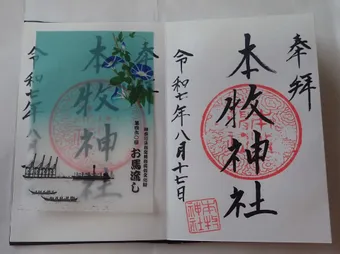 奉拝
本牧神社
令和七年八月十七日
本牧神社
奉拝
本牧神社
令和七年八
お馬流し